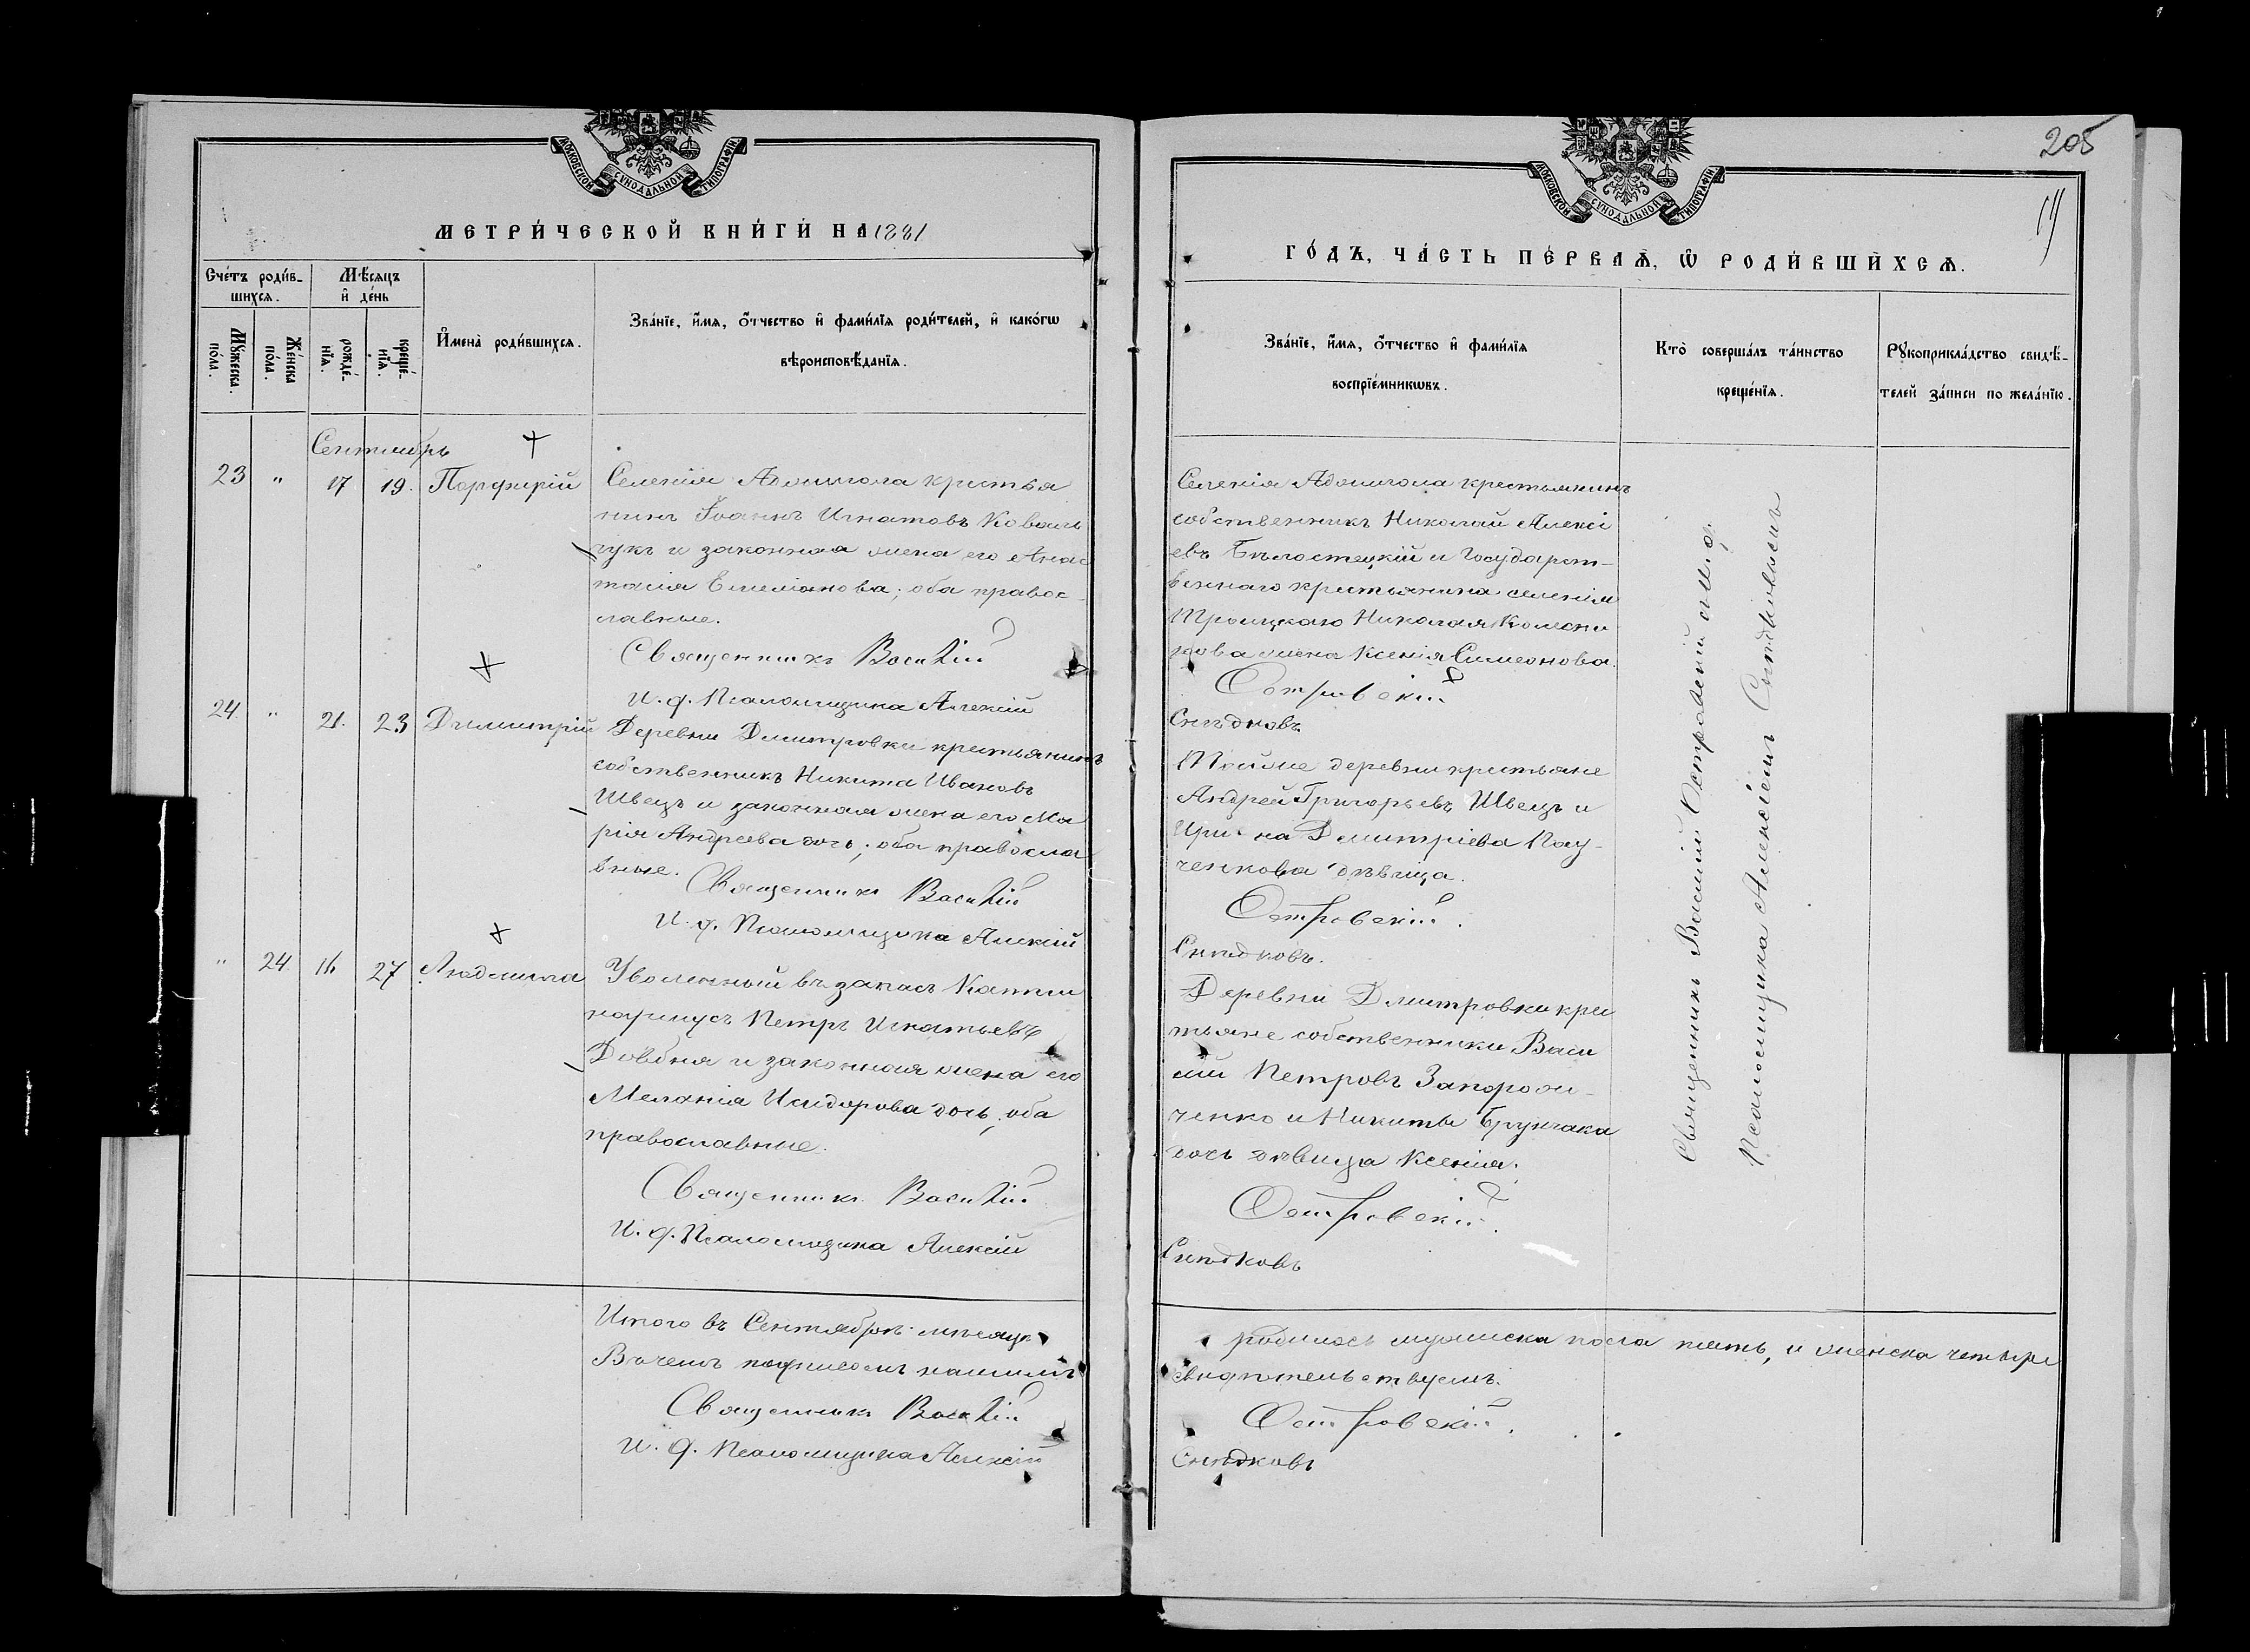 МОСКОВСКОЙ СѴНОДАЛЬНОЙ ТИПОГРАФІИ.
МЕТРИ́ЧЕСКОЙ КНИ́ГИ НА 1881
Сче́тъ роди́в-
шихсѧ.
Мѣ́сѧцъ
и҆ де́нь
Мꙋ́жеска по́ла.
Же́нска по́ла.
рожде́-
нїѧ.
креще́-
нїѧ.
И҆мена̀ роди́вшихсѧ.
Зва́нїе, и҆́мѧ, ѻ҆́тчество и҆ фами́лїѧ роди́телей, и҆ како́гѡ
вѣроисповѣ́данїѧ.
Сентябрь
23 " 17 19. Порфирій
Селенія крестья
нинъ Іоаннъ Игнатовъ Коваль
чукъ и законная жена его Анас
тасія Емеліанова; оба правос-
лавные.
Священникъ Василій
И. д. Псаломщика Алексій
24. " 21. 23 Димитрій
Деревни Дмитровки крестьянинъ
собственникъ Никита Ивановъ
Швецъ и законная жена его Ма
рія Андреева дочь; оба правосла
вные.
Священникъ Василій
И. д. Псаломщика Алексій
" 24 16 27 Людмила
Уволенный въ запасъ Каптен
нармусъ Петръ Игнатьевъ
Довбня и законная жена его
Меланія Исидорова дочь, оба
православные.
Священникъ Василій
И. д. Псаломщика Алексій
Итого въ Сентябрѣ мѣсяцѣ
Въ чемъ подписомъ нашимъ
Священникъ Василій
И. д. Псаломщика Алексій
205
МОСКОВСКОЙ СѴНОДАЛЬНОЙ ТИПОГРАФІИ.
ГО́ДЪ, ЧА́СТЬ ПЕ́РВАѦ, Ѡ҆ РОДИ́ВШИХСѦ.
Зва́нїе, и҆́мѧ, ѻ҆́тчество и҆ фами́лїѧ
воспрїе́мникѡвъ.
Кто̀ соверша́лъ та́инство
креще́нїѧ.
Рꙋкоприкла́дство свидѣ́-
телей за́писи по жела́нїю.
Селенія крестьянинъ
собственникъ Николай Алексі
евъ Бѣлостецкій и Государст-
веннаго крестьянина селенія
Троицкаго Николая Колесни
кова жена Ксенія Симеонова.
Островскій
Снѣдковъ.
Тойже деревни крестьяне
Андрей Григорьевъ Швецъ и
Ирина Димитріева
ченкова дѣвица.
Островскій.
Снѣдковъ.
Деревни Дмитровки крес
тьяне собственники Васи
лій Петровъ Запорож-
ченко и Никиты Брунчака
дочь дѣвица Ксенія.
Островскій.
Снѣдковъ
родилось мужеска пола пять, и женска четыре
свидѣтельствуемъ.
Островскій.
Снѣдковъ
Священникъ Василій Островскій съ и. д.
Псаломщика Алексіемъ Снѣдковымъ